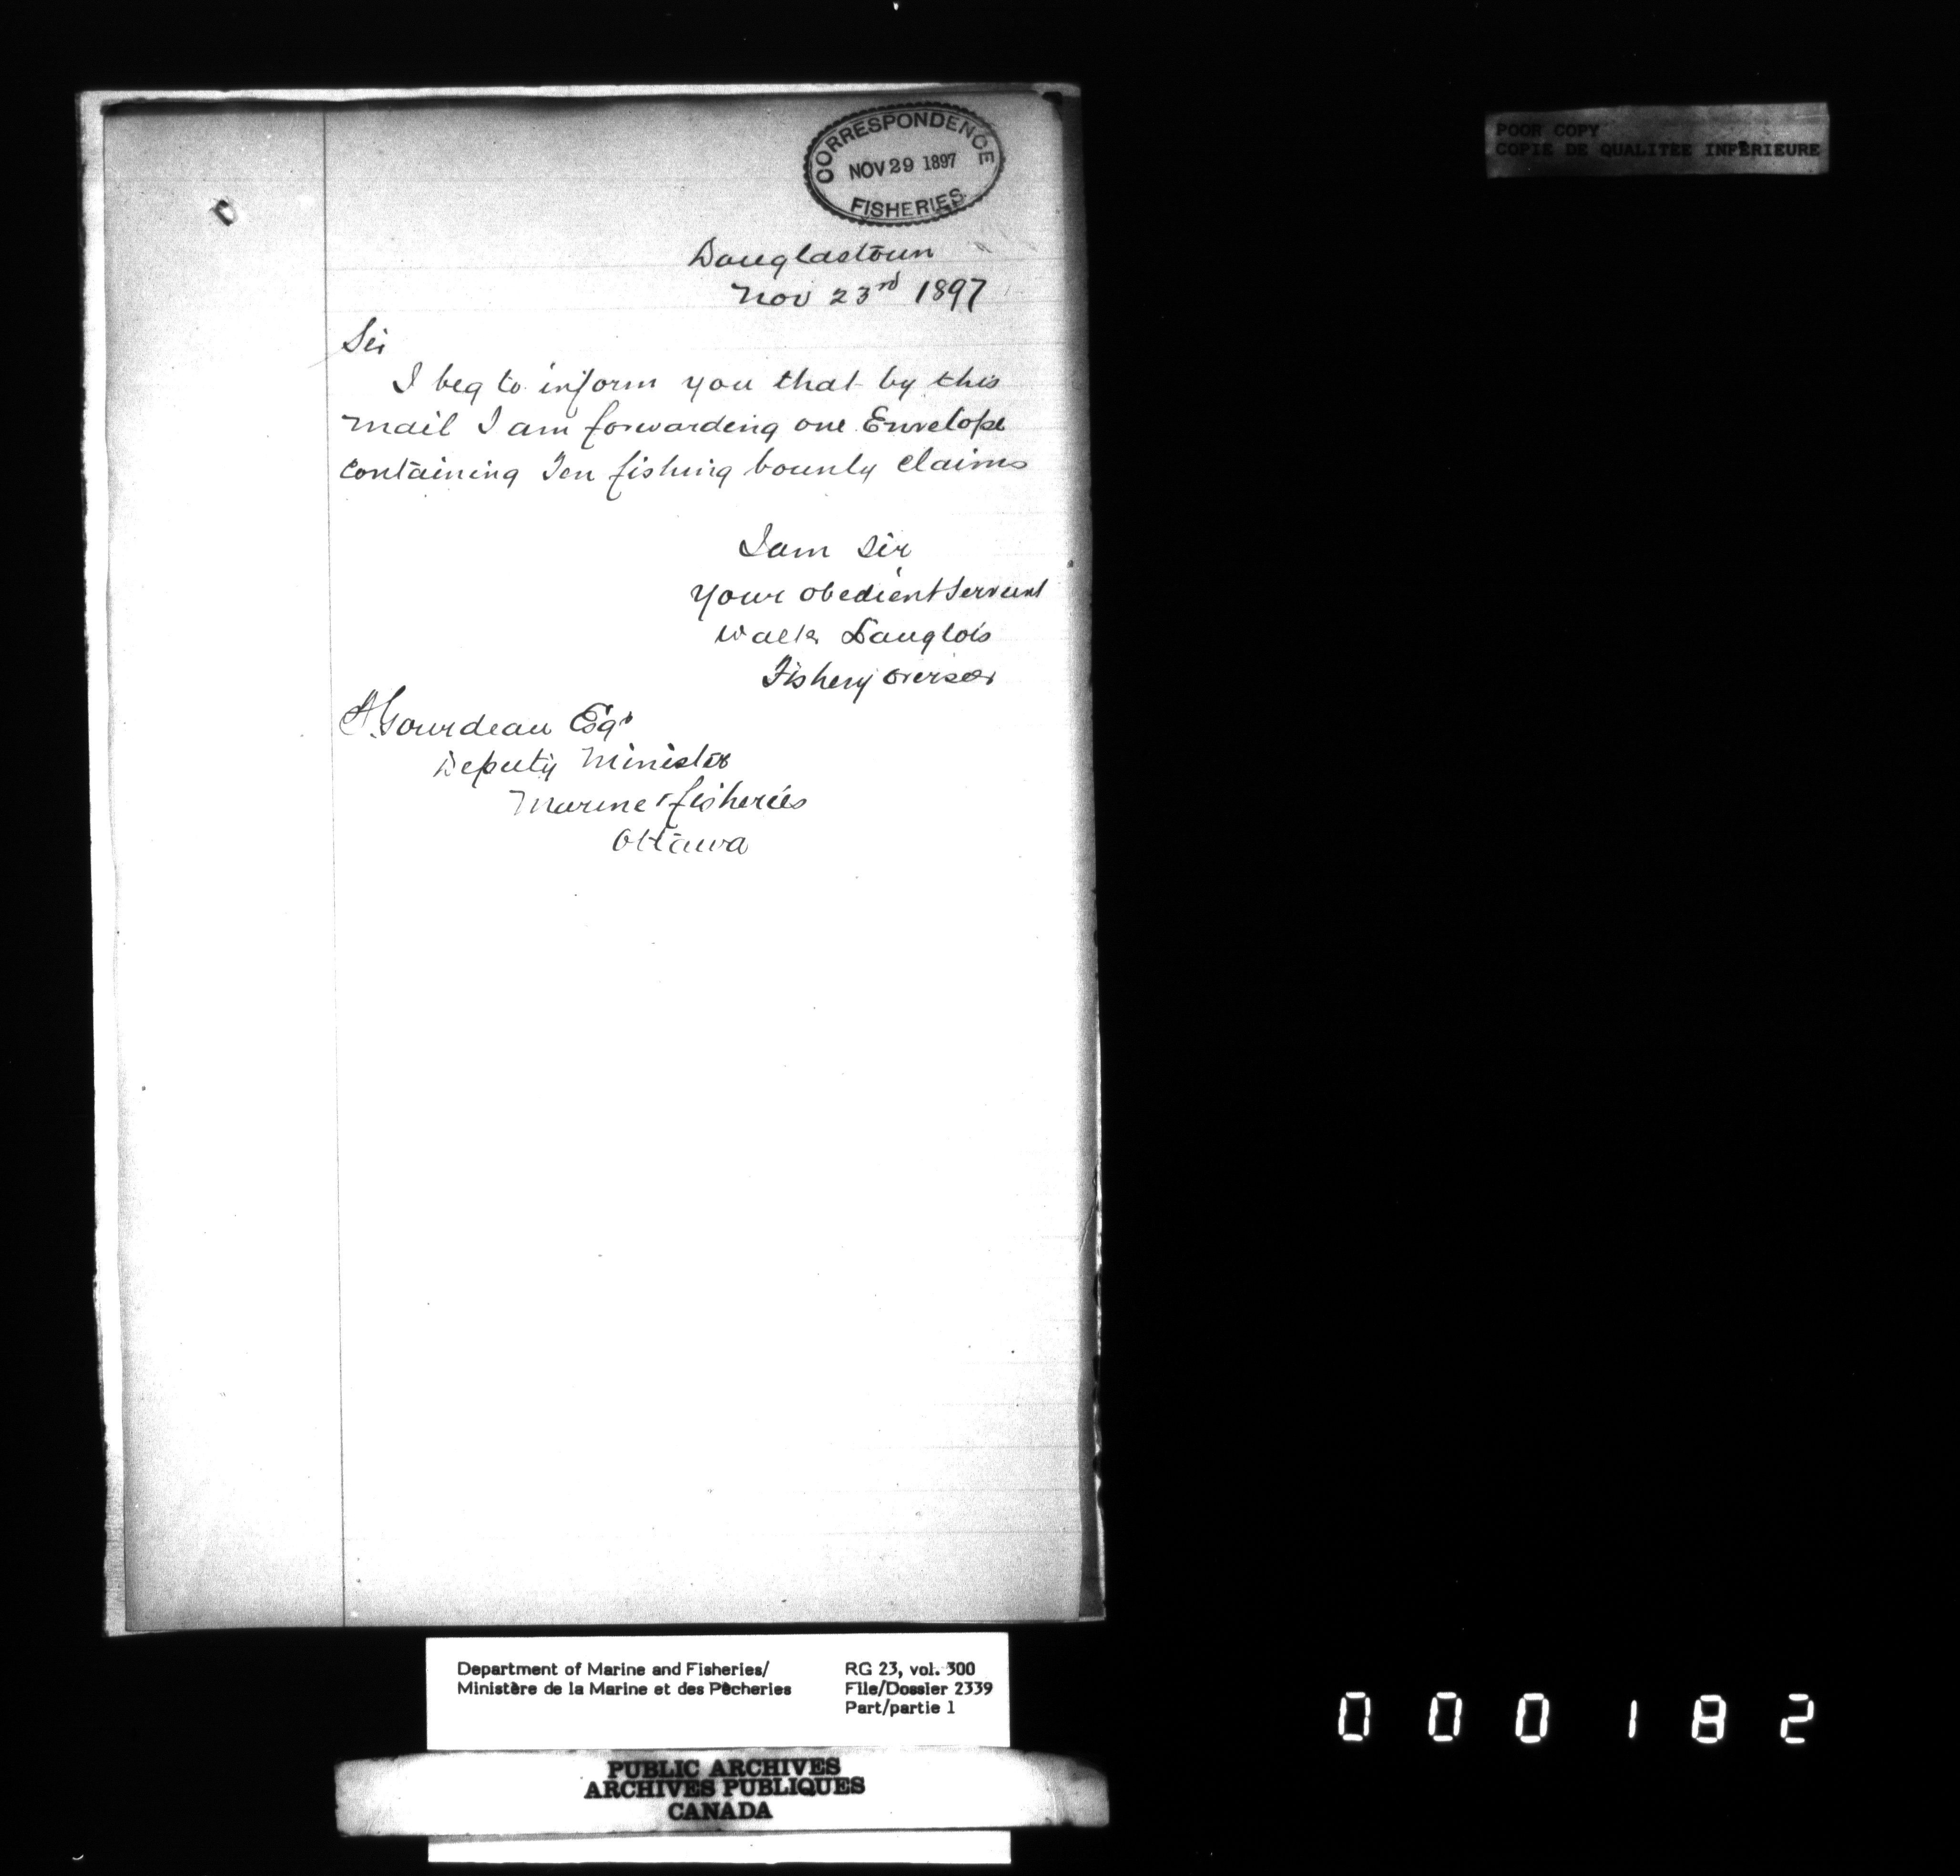 CORRESPONDENCE
NOV 29 1897
FISHERIES
POOR COPY
COPIE DE QUALITEE INFERIEURE
Douglastown
Nov 23rd 1897
Sir
I beg to inform you that by this
mail I am forwarding one Envelope
containing Ten fishing bounty claims
I am Sir
your obedient Servant
Langlois
Fishery overseer
Gourdeau Esqr
Deputy Minister
Marine & fisheries
Ottawa
Department of Marine and Fisheries/
Ministère de la Marine et des Pêcheries
RG 23, vol. 300
File/Dossier 2339
Part/partie 1
PUBLIC ARCHIVES
ARCHIVES PUBLIQUES
CANADA
000182